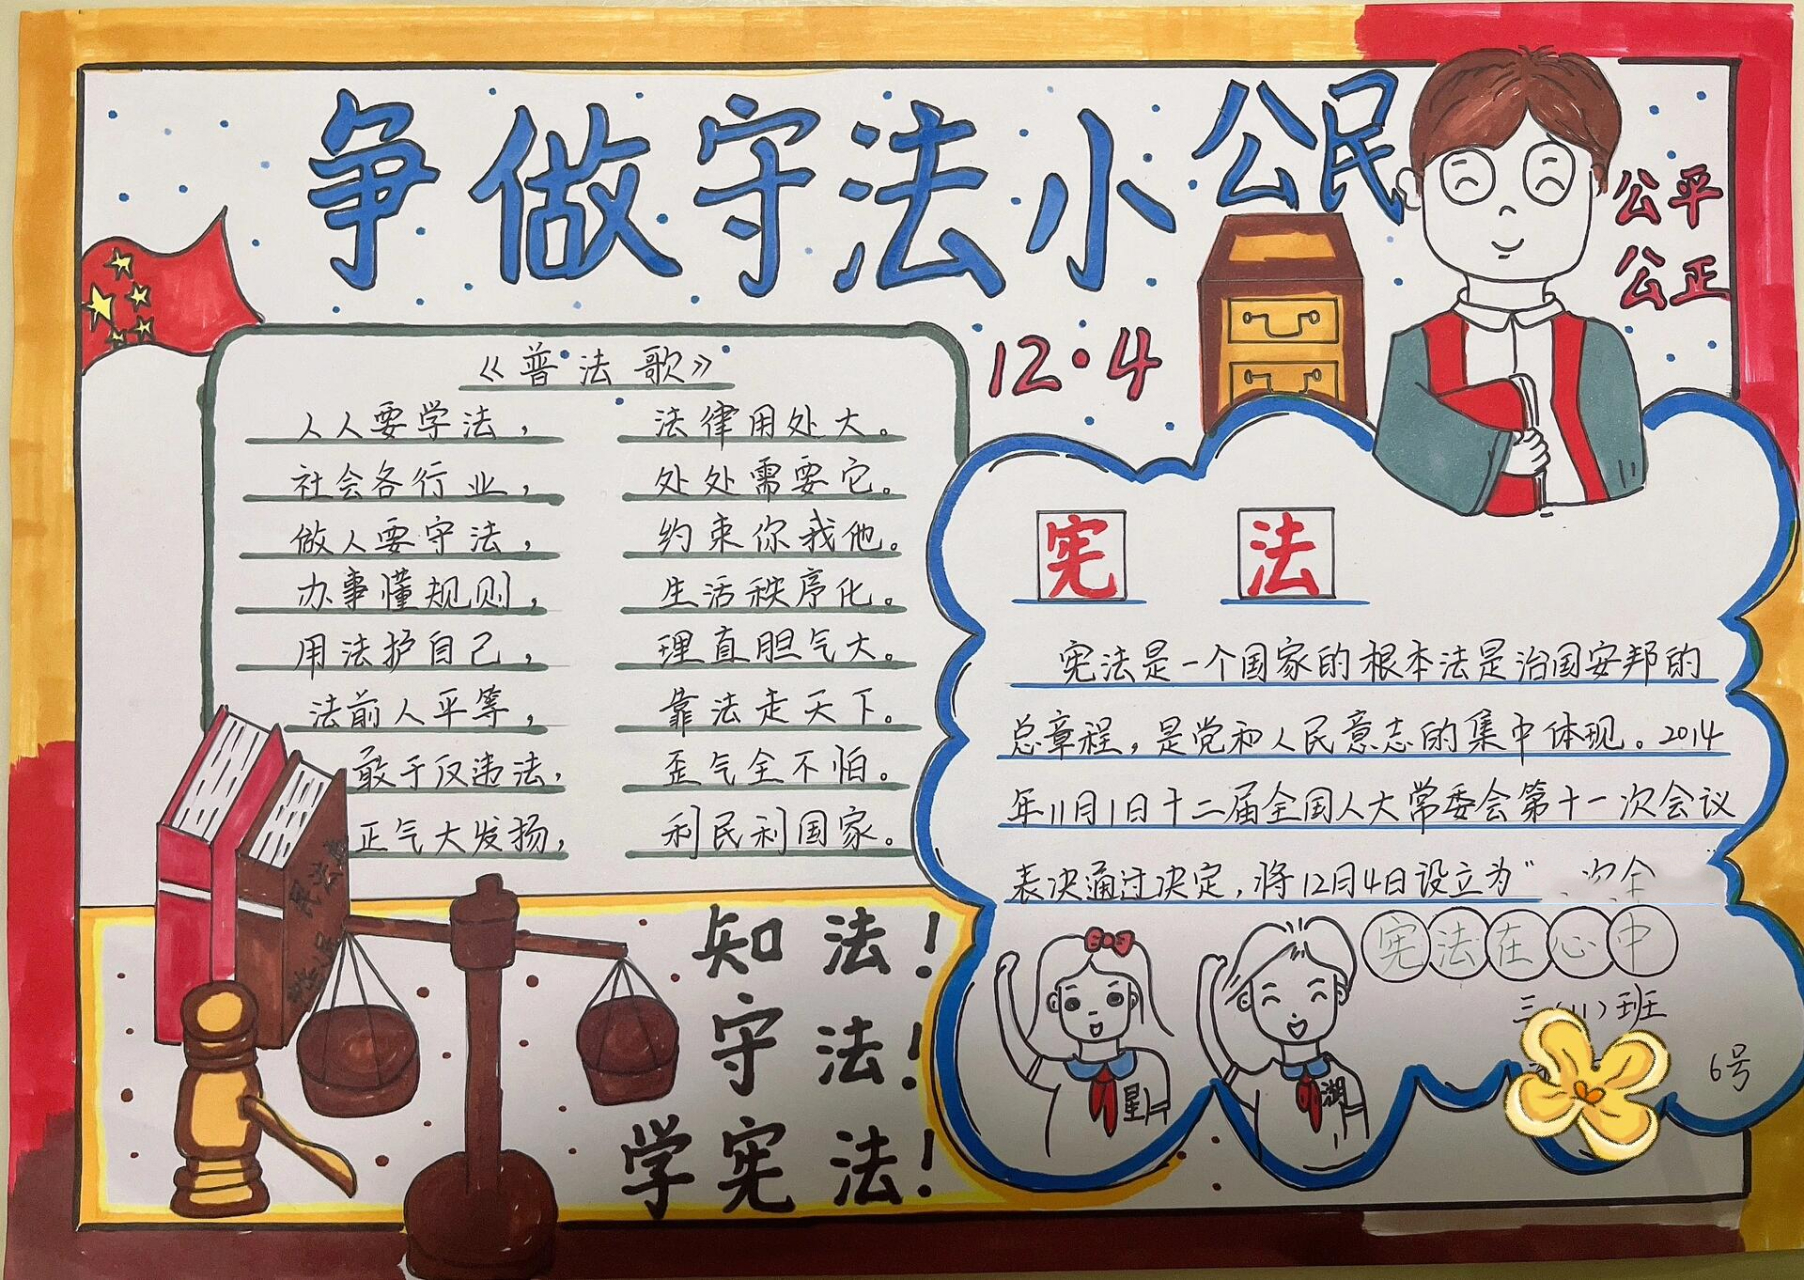 争做守法小公民
公平
公正
12·4
《普法歌》
人人要学法，法律用处大。
社会各行业，处处需要它。
做人要守法，约束你我他。
办事懂规则，生活秩序化。
用法护自己，理直胆气大。
法前人平等，靠法走天下。
敢于仅违法，歪气全不怕。
正气大发扬，利民利国家。
宪法
宪法是一个国家的根本法是治国安邦的
总章程，是党和人民意志的集中体现。2014
年11月1日十二届全国人大常委会第十一次会议
表决通过决定，将12月4日设立为"
宪法在心中
三(11)班
6号
星
湖
知法！
守法！
学宪法！